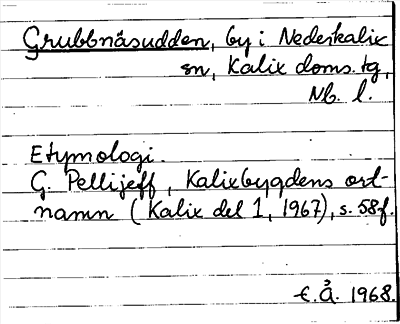 Grubbnäsudden, by i Nederkalix
sn, Kalix doms. tg,
Nb. l.
Etymologi.
G. Pellijeff, Kalixbygdens ort-
namn (Kalix del 1, 1967), s. 58f.
E.Å. 1968.